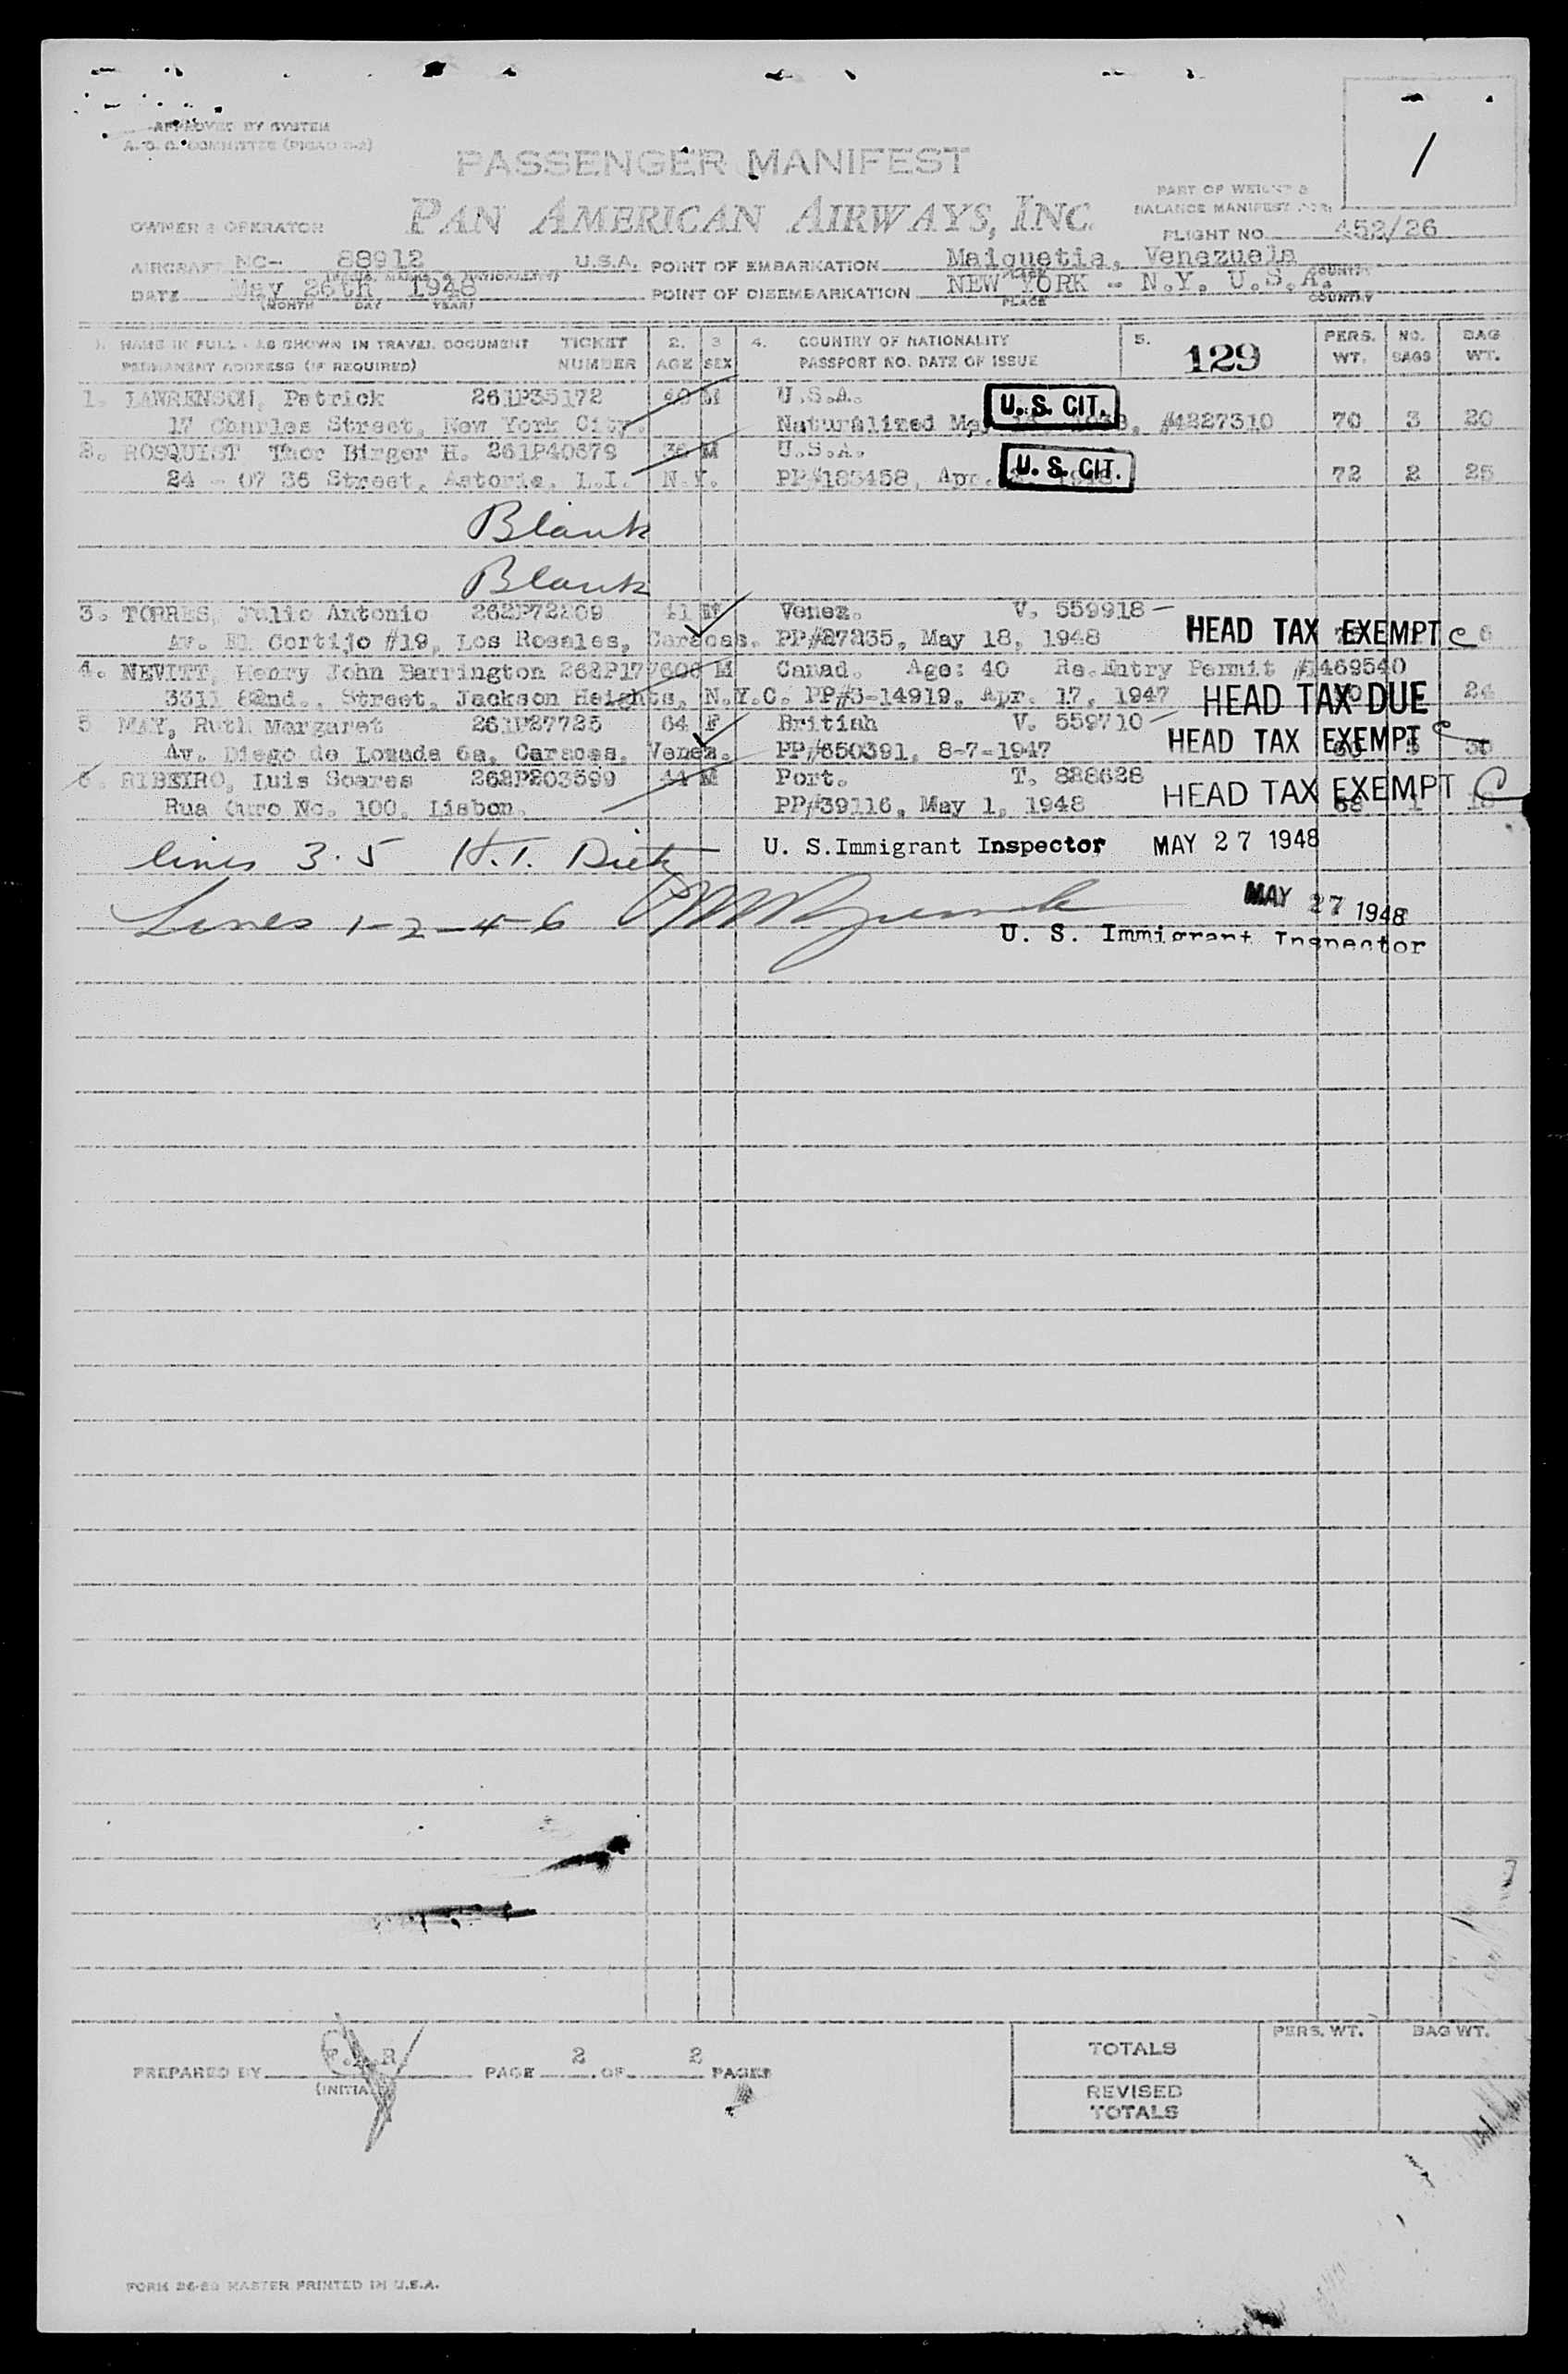 APPROVED BY SYSTEM
A. O. C. COMMITTEE
1
PASSENGER MANIFEST
PART OF WEIGHT &
BALANCE MANIFEST FOR:
OWNER & OPERATOR PAN AMERICAN AIRWAYS, INC. FLIGHT NO. 452/26
AIRCRAFT NC- 88912 U.S.A. POINT OF EMBARKATION Maiquetia, Venezuela
PLACE COUNTRY
DATE May 26th 1948 POINT OF DISEMBARKATION NEW YORK - N.Y. U.S.A.
(MONTH DAY YEAR) PLACE COUNTRY
1. NAME IN FULL - AS SHOWN IN TRAVEL DOCUMENT TICKET 2. 3 4. COUNTRY OF NATIONALITY 5. 129 PERS. NO. BAG
PERMANENT ADDRESS (IF REQUIRED) NUMBER AGE SEX PASSPORT NO. DATE OF ISSUE WT. BAGS WT.
1. LAWRENSON, Patrick 261P35172 40 M U.S.A. U. S. CIT.
17 Charles Street, New York City. Naturalized #4227310 70 3 20
2. ROSQUIST Thor Birger H. 261P40679 36 M U.S.A. U. S. CIT.
24 - 07 36 Street, Astoria, L.I. N.Y. PP#183458, Apr. 72 2 25
Blank
Blank
3. TORRES, Julio Antonio 262P72209 41 M Venez. V. 559918
Av. El Cortijo #19, Los Rosales, Caracas. PP#27235, May 18, 1948 HEAD TAX EXEMPT C 6
4. NEVITT, Henry John Barrington 262P177606 M Canad. Age: 40 Re.Entry Permit #1469540
3311 82nd., Street, Jackson Heights, N.Y.C. PP#3-14919, Apr. 17, 1947 HEAD TAX DUE 24
5 MAY, Ruth Margaret 261P27725 64 F British V. 559710
Av. Diego de Lozada 6a, Caracas, Venez. PP#650391, 8-7-1947 HEAD TAX EXEMPT C
6. RIBEIRO, Luis Soares 262P203599 44 M Port. T. 828628
Rua Ouro No. 100, Lisbon. PP#39116, May 1, 1948 HEAD TAX EXEMPT C 68 1
lines 3.5 H.T. Dietz U. S. Immigrant Inspector MAY 27 1948
Lines 1-2-4-6 MAY 27 1948
U. S. Immigrant Inspector
PREPARED BY PAGE 2 OF 2 PAGES
(INITIAL)
PERS. WT. BAG WT.
TOTALS
REVISED
TOTALS
MASTER PRINTED IN U.S.A.